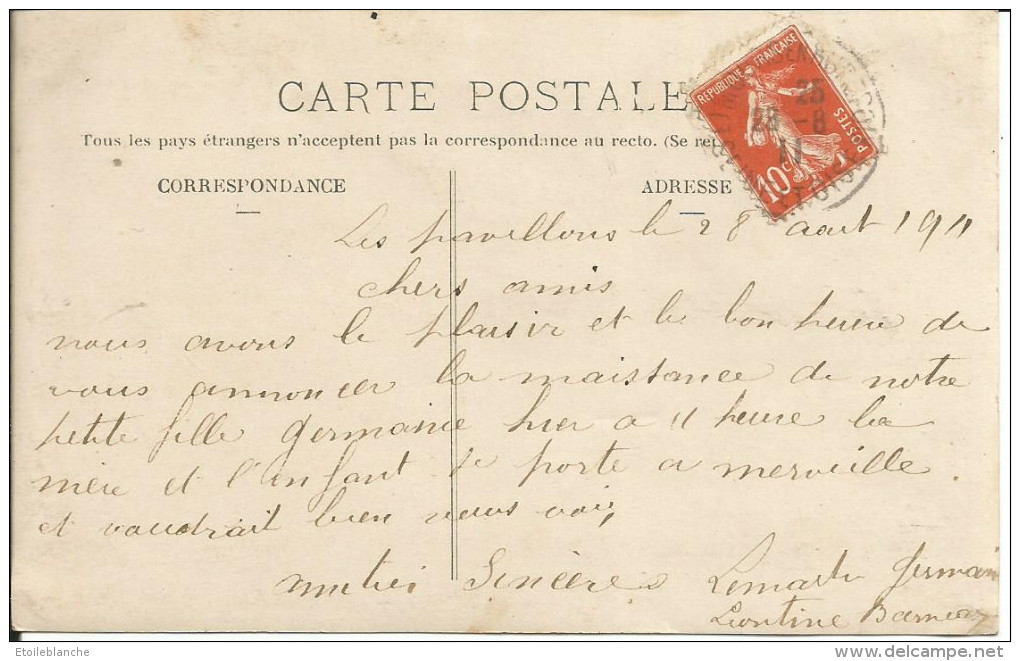 CARTE POSTALE
Tous les pays étrangers n'acceptent pas la correspondance au recto. (Se re
CORRESPONDANCE
ADRESSE
RÉPUBLIQUE FRANÇAISE
POSTES
10c
25
28 -8
11
Les pavillons le 28 aout 1911
chers amis
nous avons le plaisir et le bon heure de
vous annoncer la maistance de notre
petite fille Germaine hier a 11 heure la
mère et l'enfant se porte a merveille.
et vaudrait bien vous voir,
Sincères Germain
Leontine
Etoileblanche
www.delcampe.net